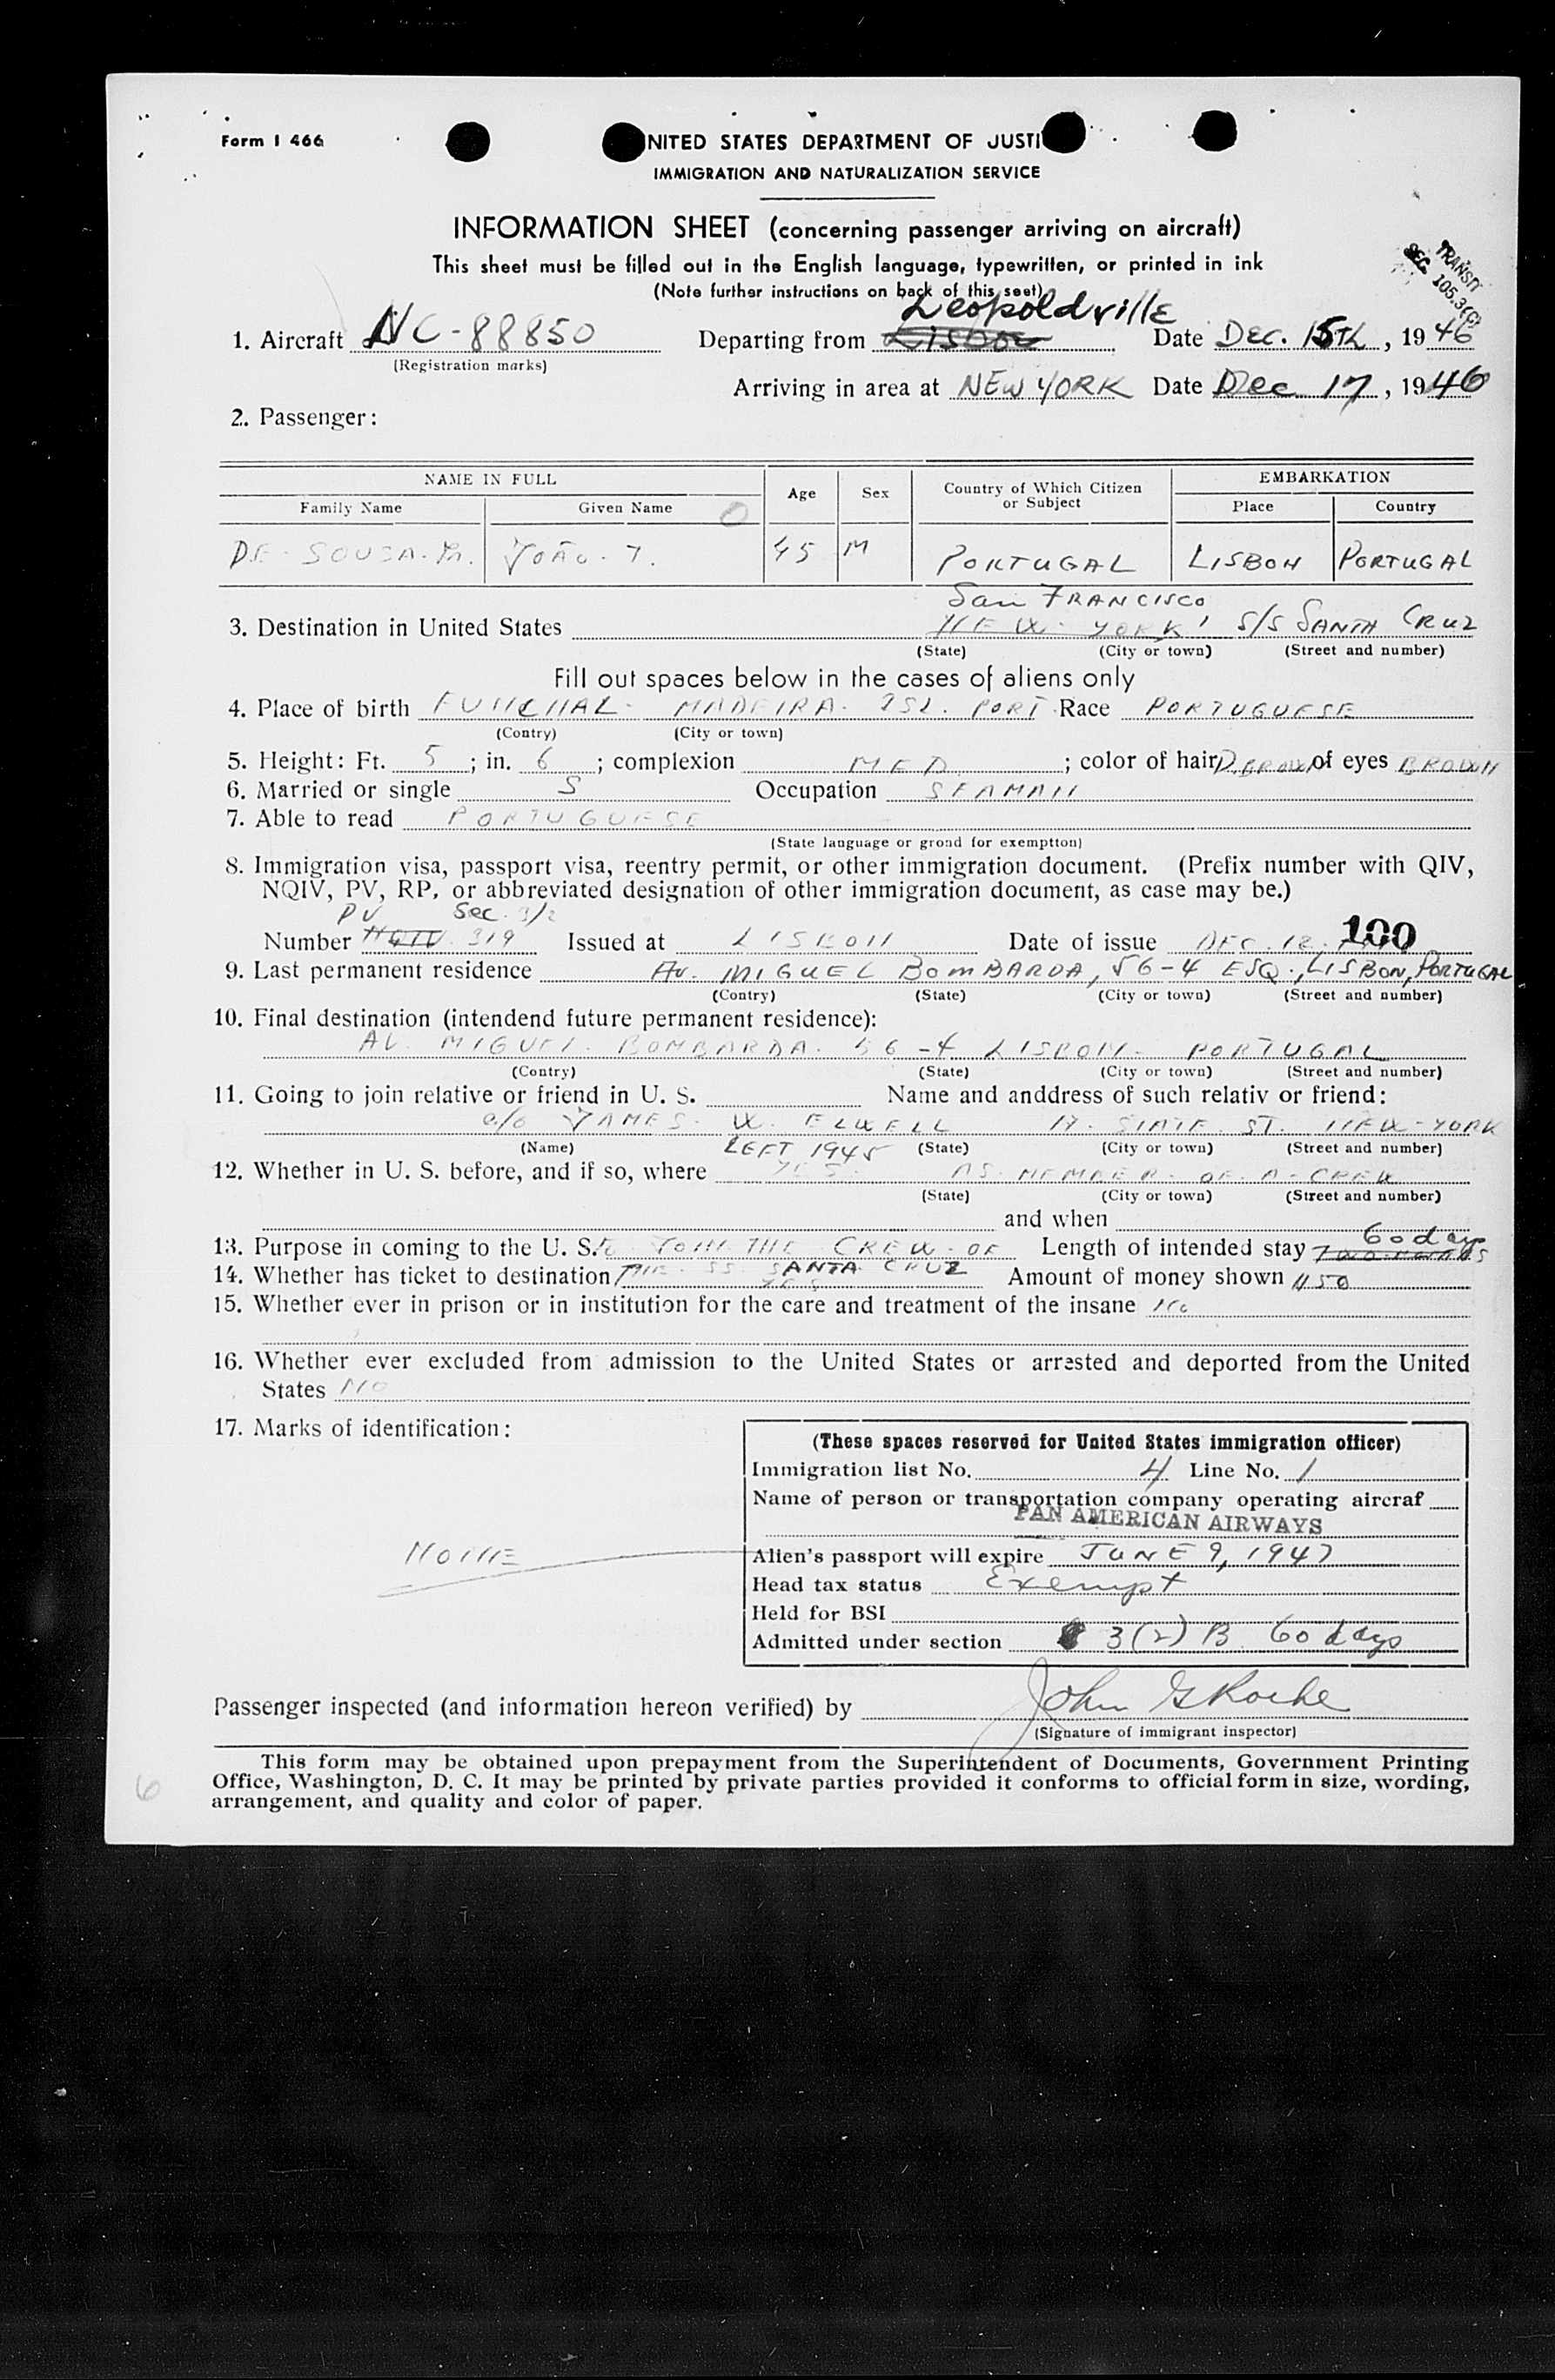 Form I 466
NITED STATES DEPARTMENT OF JUSTI
IMMIGRATION AND NATURALIZATION SERVICE
INFORMATION SHEET (concerning passenger arriving on aircraft)
This sheet must be filled out in the English language, typewritten, or printed in ink
(Note further instructions on back of this seet)
TRANSIT
SEC. 105.3(C)
Leopoldville
1. Aircraft NC-88850 Departing from Lisbon Date Dec. 15th, 1946
(Registration marks)
Arriving in area at NEW YORK Date Dec 17, 1946
2. Passenger:
NAME IN FULL Age Sex Country of Which Citizen or Subject EMBARKATION
Family Name Given Name Place Country
DE SOUZA. João. T. 45 M PORTUGAL LISBON PORTUGAL
San FRANCISCO
3. Destination in United States NEW YORK S/S SANTA CRUZ
(State) (City or town) (Street and number)
Fill out spaces below in the cases of aliens only
4. Place of birth FUNCHAL MADEIRA ISL. PORT Race PORTUGUESE
(Contry) (City or town)
5. Height: Ft. 5; in. 6; complexion MED; color of hair D BROWN of eyes BROWN
6. Married or single S Occupation SEAMAN
7. Able to read PORTUGUESE
(State language or groad for exemptton)
8. Immigration visa, passport visa, reentry permit, or other immigration document. (Prefix number with QIV,
NQIV, PV, RP, or abbreviated designation of other immigration document, as case may be.)
PV Sec. 3/2
Number NQIV 319 Issued at LISBON Date of issue DEC. 12. 100
9. Last permanent residence Av. MIGUEL BOMBARDA, 56-4 ESQ., LISBON, PORTUGAL
(Contry) (State) (City or town) (Street and number)
10. Final destination (intendend future permanent residence):
AV. MIGUEL BOMBARDA. 56-4 LISBON. PORTUGAL
(Contry) (State) (City or town) (Street and number)
11. Going to join relative or friend in U. S. Name and anddress of such relativ or friend:
c/o JAMES W. ELWELL 17. STATE ST. NEW-YORK
(Name) (State) (City or town) (Street and number)
LEFT 1945
12. Whether in U. S. before, and if so, where YES. AS MEMBER OF A CREW
(State) (City or town) (Street and number)
and when
60 days
13. Purpose in coming to the U. S. To JOIN THE CREW OF Length of intended stay TWO
14. Whether has ticket to destination THE SS SANTA CRUZ YES Amount of money shown $50
15. Whether ever in prison or in institution for the care and treatment of the insane NO
16. Whether ever excluded from admission to the United States or arrested and deported from the United
States NO
17. Marks of identification:
NONE
(These spaces reserved for United States immigration officer)
Immigration list No. 4 Line No. 1
Name of person or transportation company operating aircraf
PAN AMERICAN AIRWAYS
Alien's passport will expire JUNE 9, 1947
Head tax status Exempt
Held for BSI
Admitted under section 3(2) B 60 days
Passenger inspected (and information hereon verified) by John G Roche
(Signature of immigrant inspector)
This form may be obtained upon prepayment from the Superintendent of Documents, Government Printing
Office, Washington, D. C. It may be printed by private parties provided it conforms to official form in size, wording,
arrangement, and quality and color of paper.
6